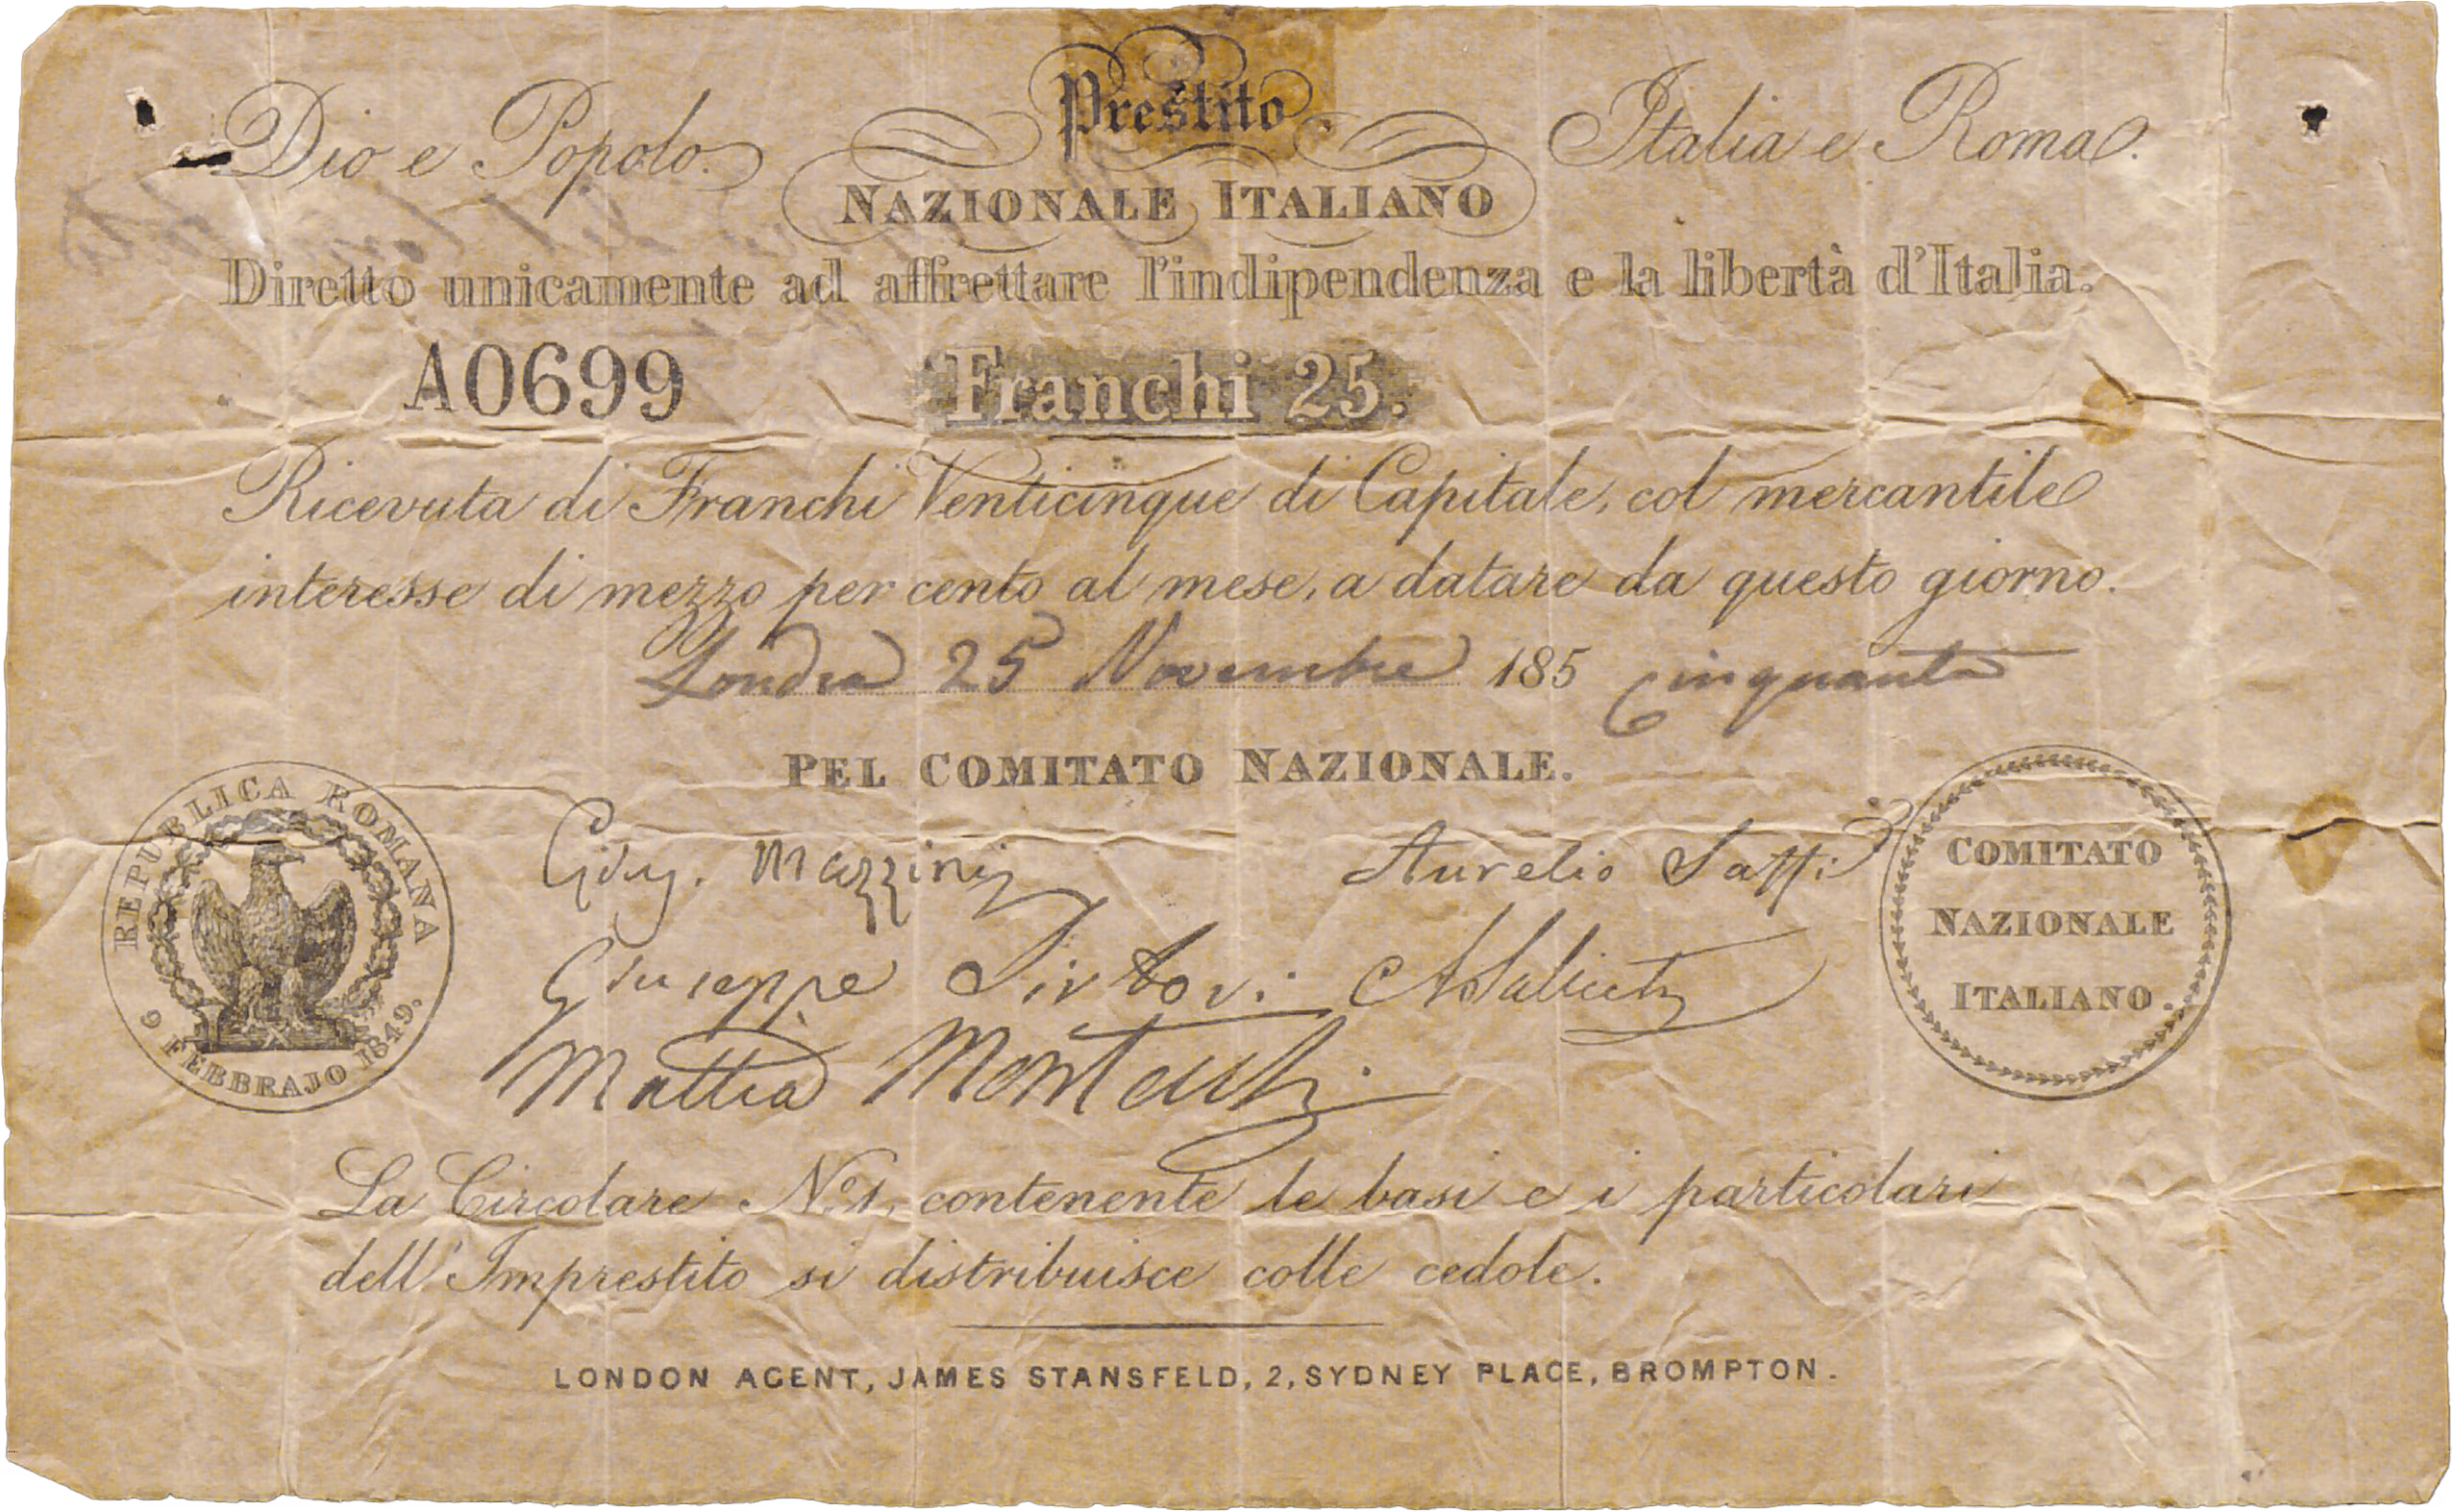 Dio e Popolo.
Prestito
Italia e Roma.
NAZIONALE ITALIANO
Diretto unicamente ad affrettare l'indipendenza e la libertà d'Italia.
A0699
Franchi 25.
Ricevuta di Franchi Venticinque di Capitale, col mercantile
interesse di mezzo per cento al mese, a datare da questo giorno.
Londra 25 Novembre 185 cinquanta
PEL COMITATO NAZIONALE.
REPUBBLICA ROMANA
9 FEBBRAJO 1849.
Gius. Mazzini
Aurelio Saffi
Giuseppe Sirtori
A Saliceti
Mattia Montecchi
COMITATO
NAZIONALE
ITALIANO.
La Circolare No. 1, contenente le basi e i particolari
dell'Imprestito si distribuisce colle cedole.
LONDON AGENT, JAMES STANSFELD, 2, SYDNEY PLACE, BROMPTON.